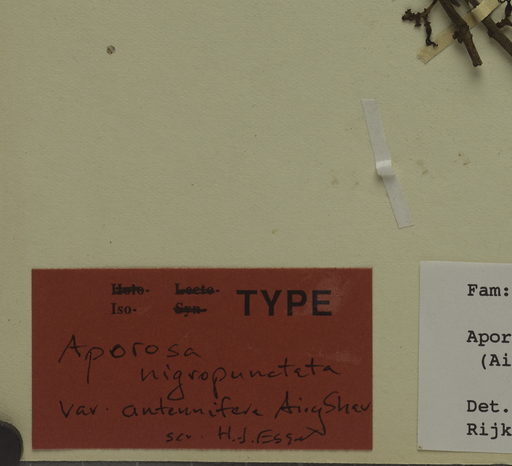 Holo- Lecto-
Iso- Syn- TYPE
Aporosa
nigropunctata
var. antennifera Airy Shaw
scr. H.J. Esser
Fam:
Apor
(Ai
Det.
Rijk